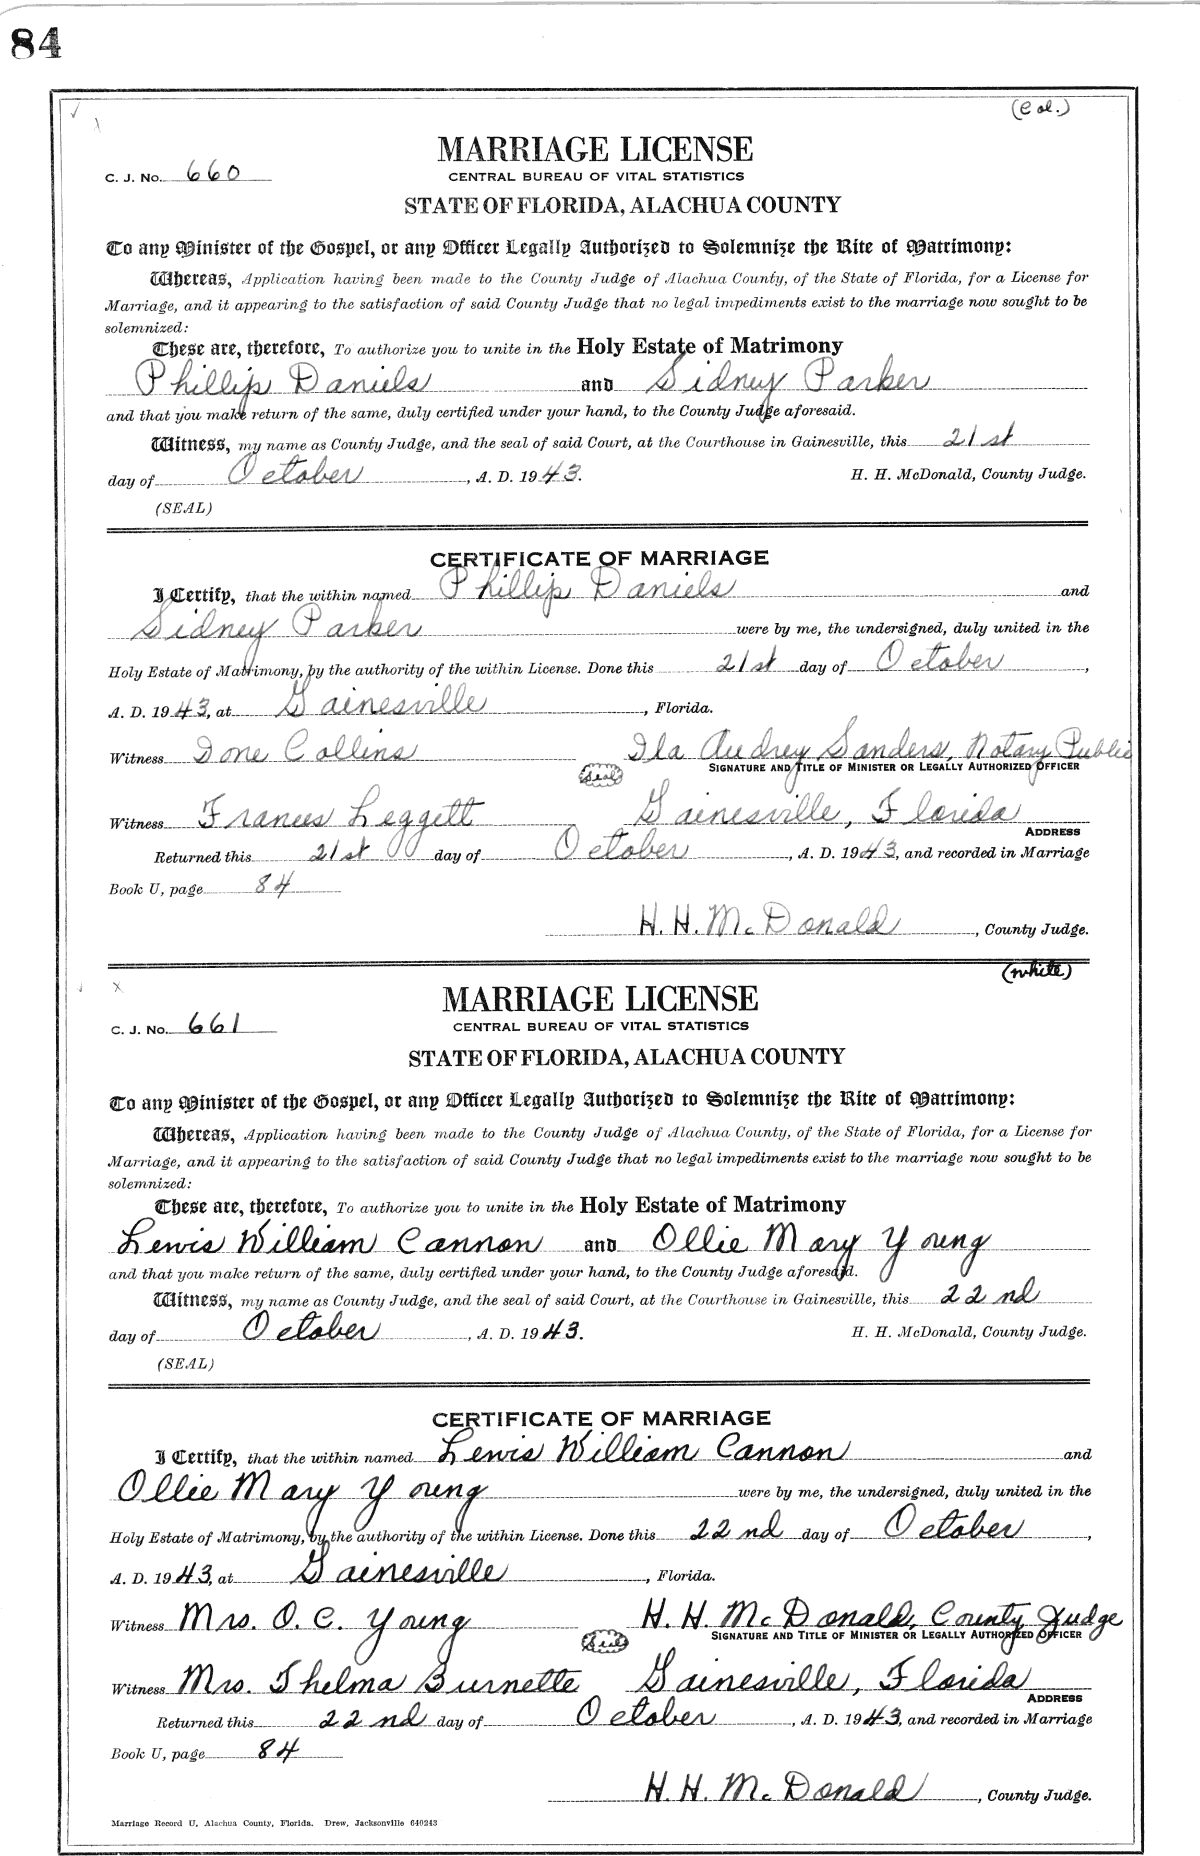 84
(Col.)
MARRIAGE LICENSE
C. J. No. 660
CENTRAL BUREAU OF VITAL STATISTICS
STATE OF FLORIDA, ALACHUA COUNTY
To any Minister of the Gospel, or any Officer Legally Authorized to Solemnize the Rite of Matrimony:
Whereas, Application having been made to the County Judge of Alachua County, of the State of Florida, for a License for
Marriage, and it appearing to the satisfaction of said County Judge that no legal impediments exist to the marriage now sought to be
solemnized:
These are, therefore, To authorize you to unite in the Holy Estate of Matrimony
Phillip Daniels and Sidney Parker
and that you make return of the same, duly certified under your hand, to the County Judge aforesaid.
Witness, my name as County Judge, and the seal of said Court, at the Courthouse in Gainesville, this 21st
day of October, A. D. 1943. H. H. McDonald, County Judge.
(SEAL)
CERTIFICATE OF MARRIAGE
I Certify, that the within named Phillip Daniels and
Sidney Parker were by me, the undersigned, duly united in the
Holy Estate of Matrimony, by the authority of the within License. Done this 21st day of October,
A. D. 1943, at Gainesville, Florida.
Witness Done Collins Ila Audrey Sanders, Notary Public
(Seal) SIGNATURE AND TITLE OF MINISTER OR LEGALLY AUTHORIZED OFFICER
Witness Frances Leggett Gainesville, Florida
ADDRESS
Returned this 21st day of October, A. D. 1943, and recorded in Marriage
Book U, page 84
H. H. McDonald, County Judge.
(white)
MARRIAGE LICENSE
C. J. No. 661
CENTRAL BUREAU OF VITAL STATISTICS
STATE OF FLORIDA, ALACHUA COUNTY
To any Minister of the Gospel, or any Officer Legally Authorized to Solemnize the Rite of Matrimony:
Whereas, Application having been made to the County Judge of Alachua County, of the State of Florida, for a License for
Marriage, and it appearing to the satisfaction of said County Judge that no legal impediments exist to the marriage now sought to be
solemnized:
These are, therefore, To authorize you to unite in the Holy Estate of Matrimony
Lewis William Cannon and Ollie Mary Young
and that you make return of the same, duly certified under your hand, to the County Judge aforesaid.
Witness, my name as County Judge, and the seal of said Court, at the Courthouse in Gainesville, this 22nd
day of October, A. D. 1943. H. H. McDonald, County Judge.
(SEAL)
CERTIFICATE OF MARRIAGE
I Certify, that the within named Lewis William Cannon and
Ollie Mary Young were by me, the undersigned, duly united in the
Holy Estate of Matrimony, by the authority of the within License. Done this 22nd day of October,
A. D. 1943, at Gainesville, Florida.
Witness Mrs. O. C. Young H. H. McDonald, County Judge
(Seal) SIGNATURE AND TITLE OF MINISTER OR LEGALLY AUTHORIZED OFFICER
Witness Mrs. Thelma Burnette Gainesville, Florida
ADDRESS
Returned this 22nd day of October, A. D. 1943, and recorded in Marriage
Book U, page 84
H. H. McDonald, County Judge.
Marriage Record U, Alachua County, Florida. Drew, Jacksonville 640243